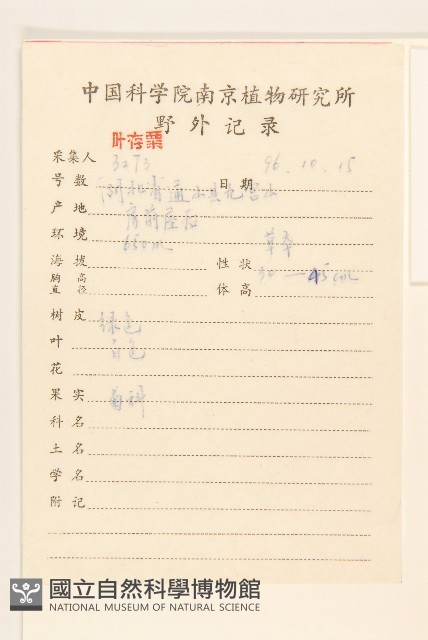 中国科学院南京植物研究所
野外记录
采集人 叶存粟
号数 3273 日期 96.10.15
产地 湖北省通山县九宫山
环境 房前屋后
海拔 650m 性状 草本
胸高直径 体高 30—45cm
树皮
叶 绿色
花 白色
果实
科名 菊科
土名
学名
附记
國立自然科學博物館
NATIONAL MUSEUM OF NATURAL SCIENCE